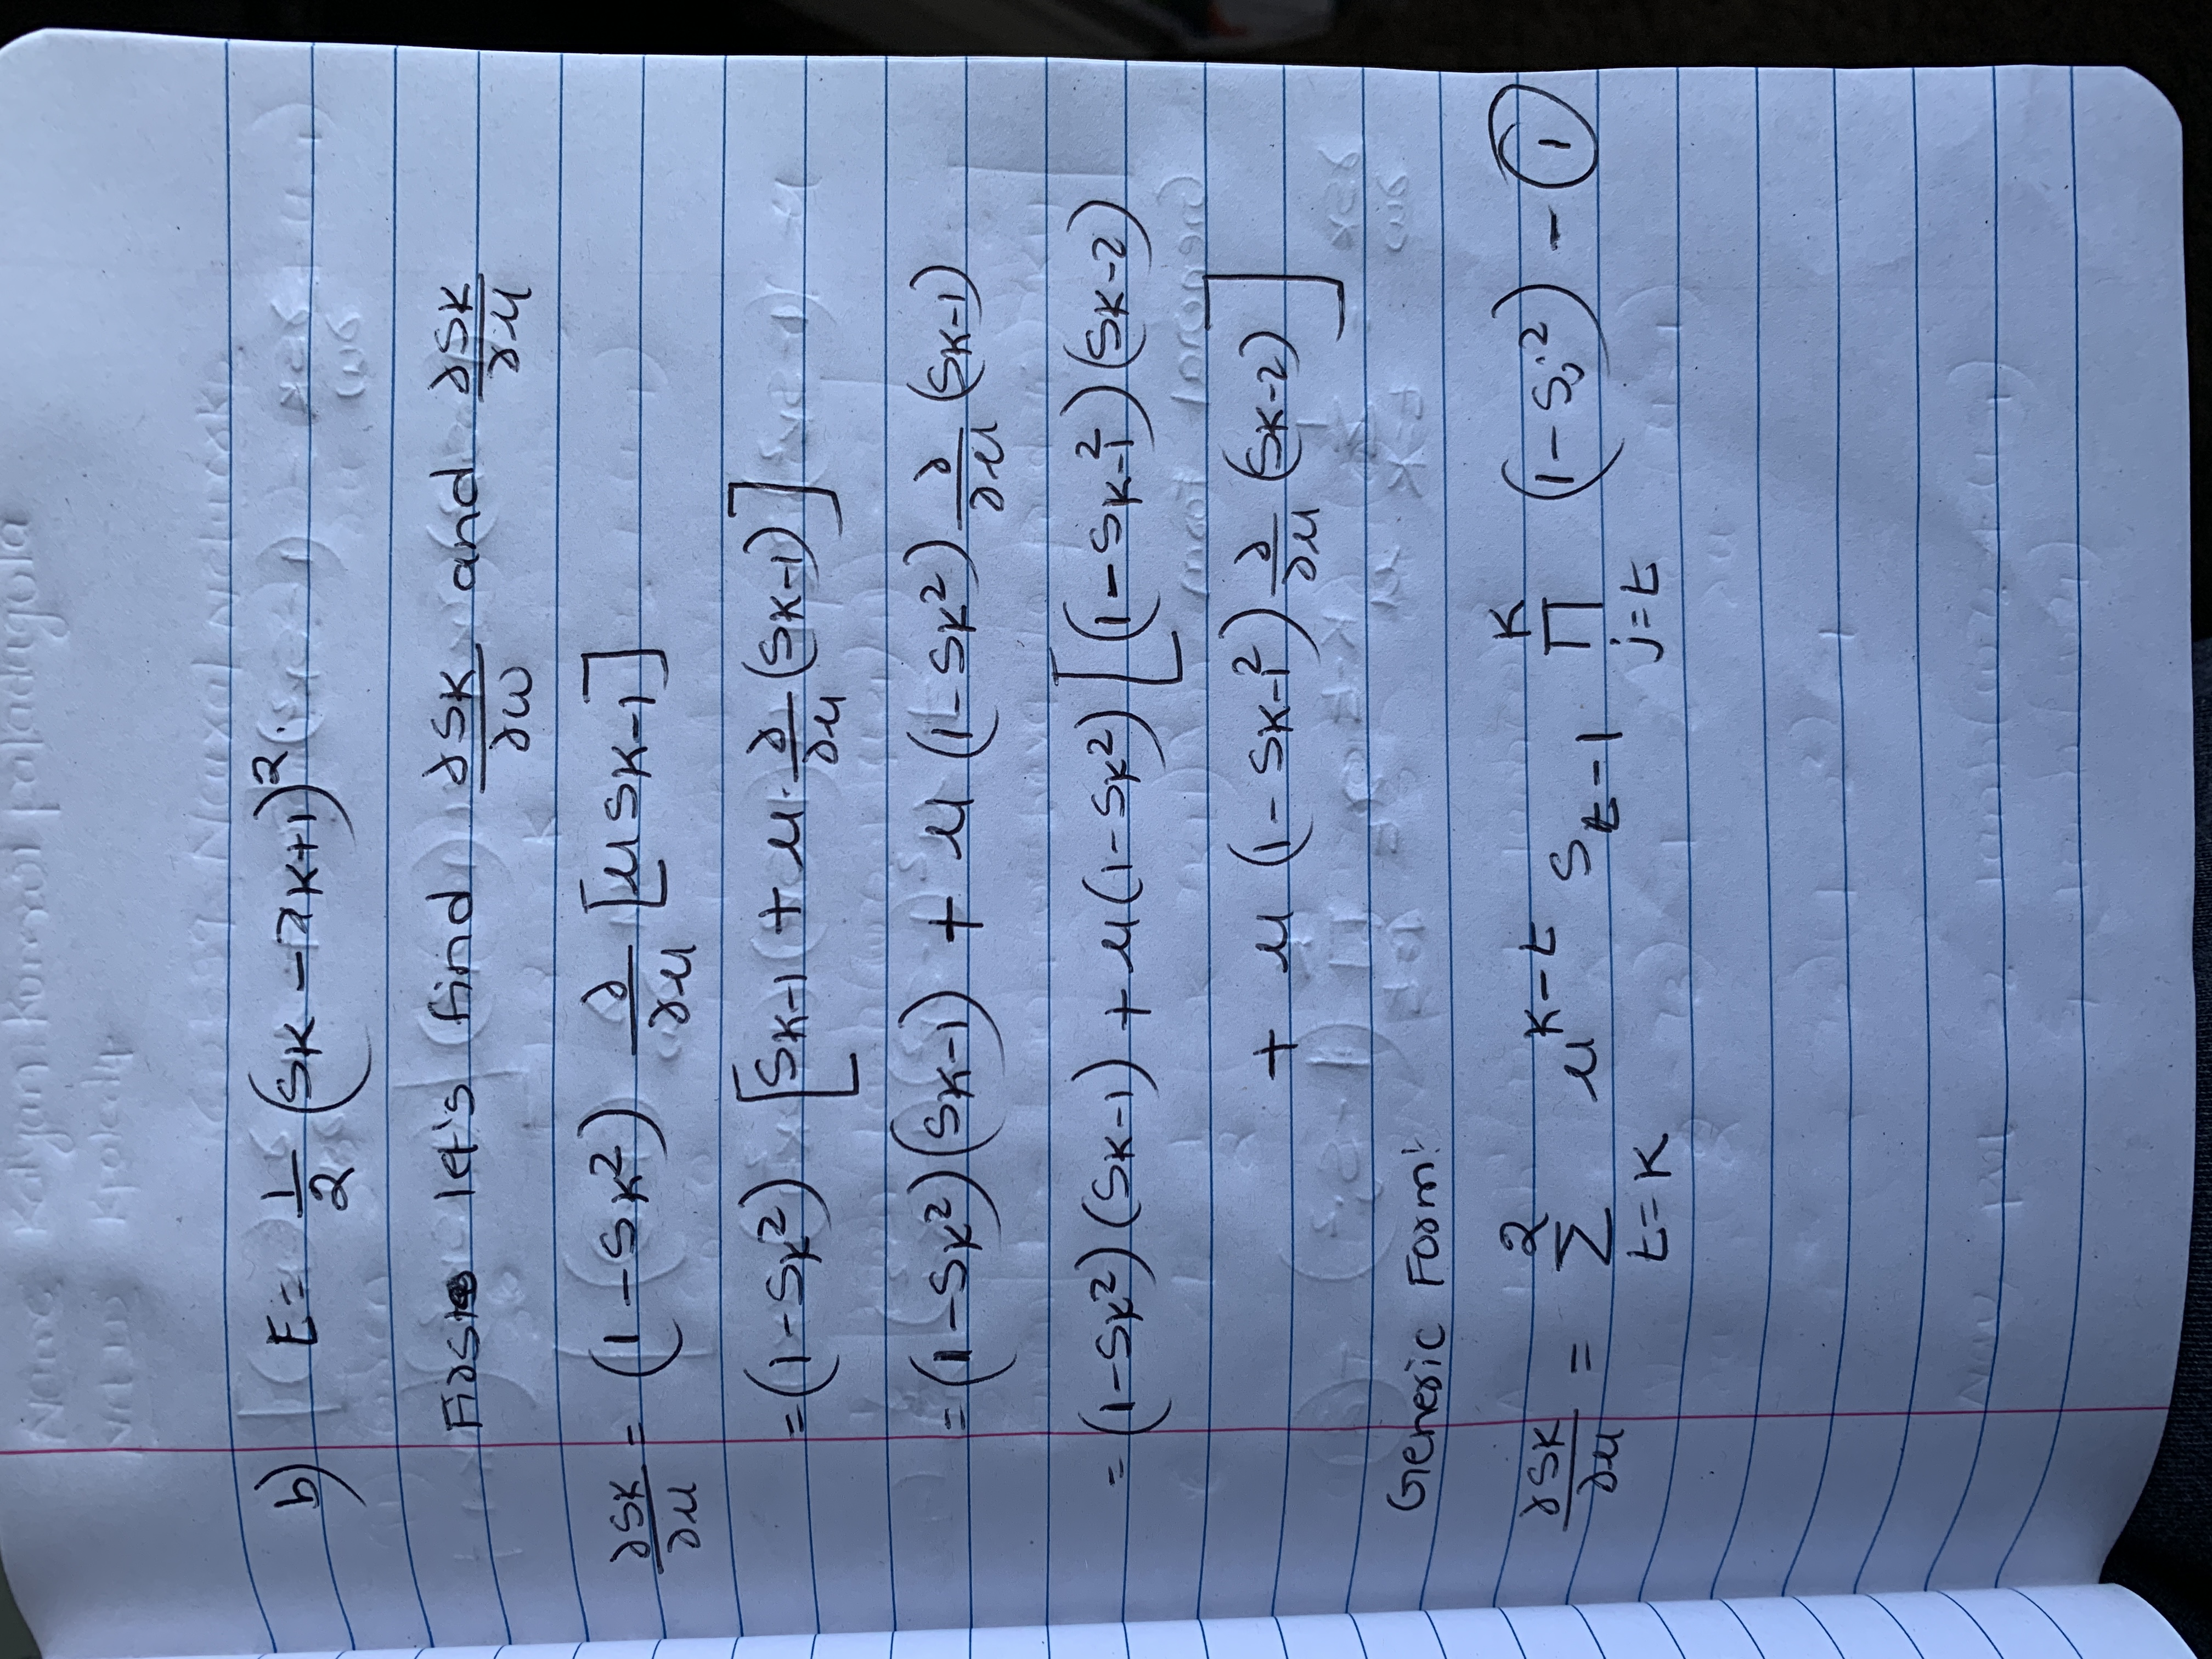 b) E = 1/2 (SK - xK+1)².
First let's find ∂SK/∂w and ∂SK/∂u
∂SK/∂u = (1 - SK²) ∂/∂u [u SK-1]
= (1 - SK²) [SK-1 + u · ∂/∂u (SK-1)]
= (1 - SK²)(SK-1) + u (1 - SK²) ∂/∂u (SK-1)
= (1 - SK²)(SK-1) + u (1 - SK²) [(1 - SK-1²)(SK-2)
+ u (1 - SK-1²) ∂/∂u (SK-2)]
Generic Form:
∂SK/∂u = Σ_{t=K}^{2} u^{K-t} S_{t-1} Π_{j=t}^{K} (1 - Sj²) - ①